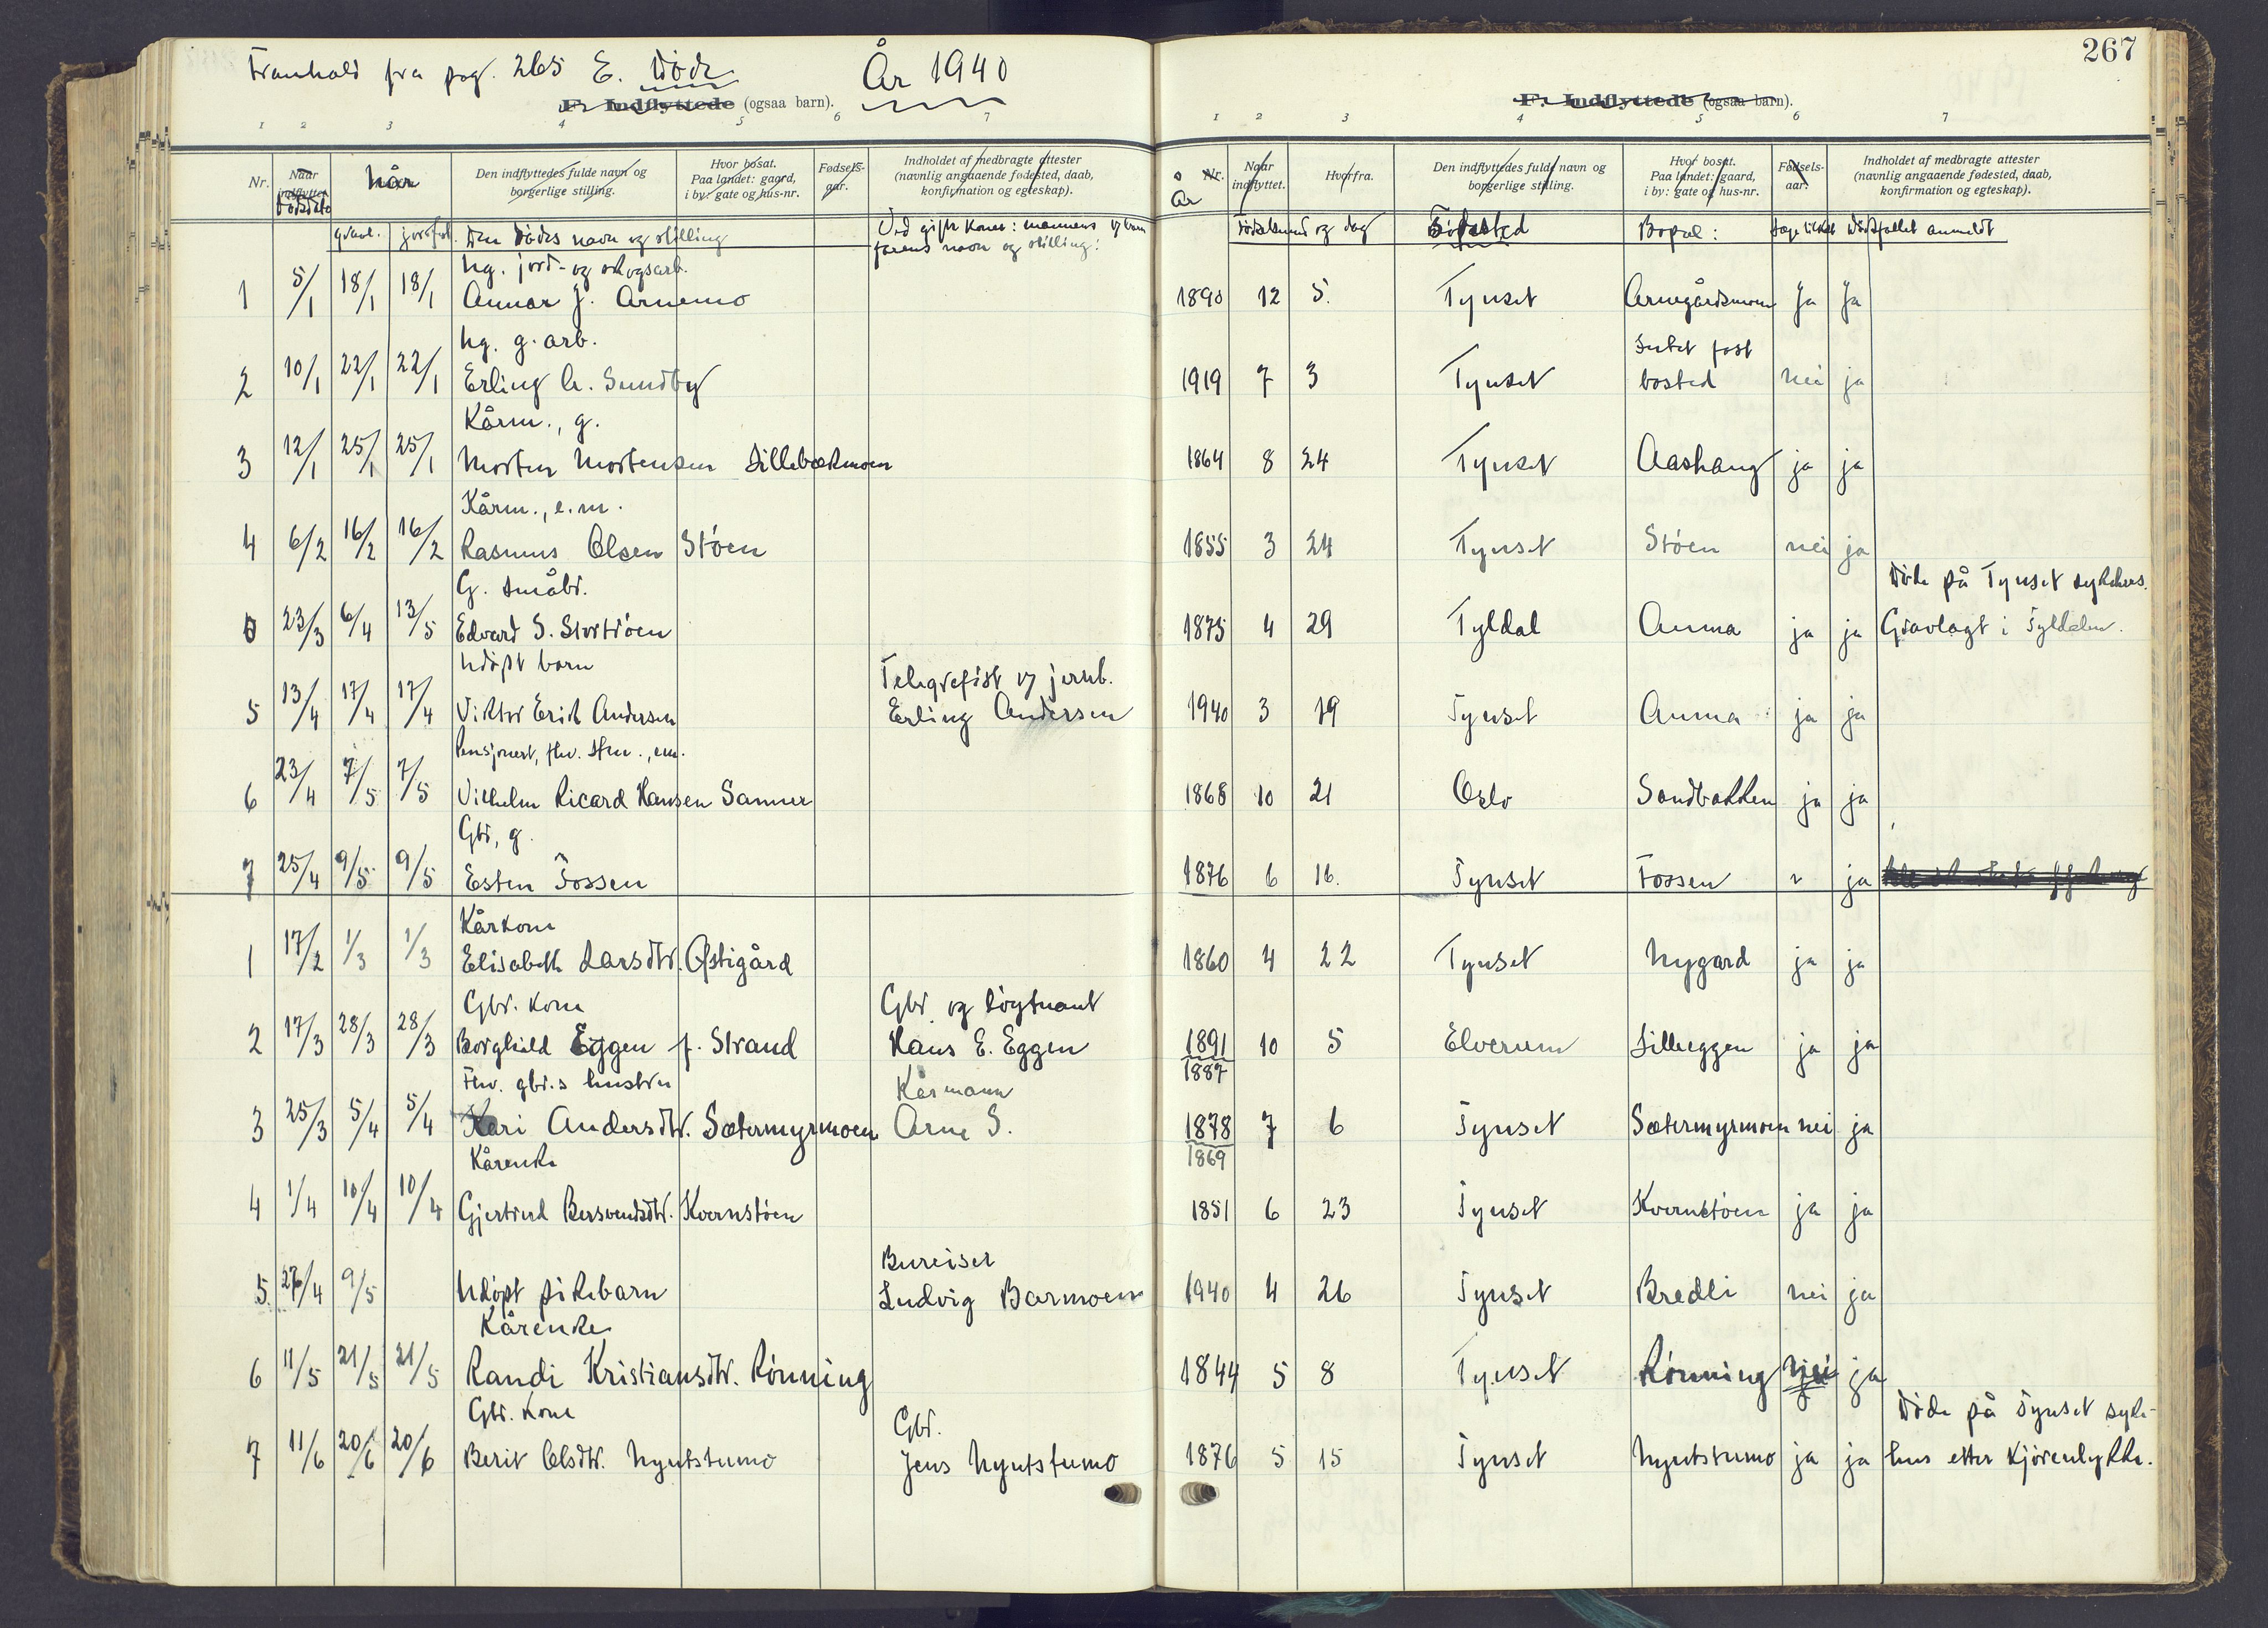 Framhald fra pag. 265 E. Døde År 1940
F. Indflyttede (ogsaa barn).
1 2 3 4 5 6 7
Nr. Naar indflyttet Dødsdato når Den indflyttedes fulde navn og borgerlige stilling. Hvor bosat. Paa landet: gaard, i by: gate og hus-nr. Fødsels-aar. Indholdet af medbragte attester (navnlig angaaende fødested, daab, konfirmation og egteskap).
gravl. jordf. Den dødes navn og stilling Ved gifte koner: mannens og barn
farens navn og stilling:
Ug. jord- og skogsarb.
1 5/1 18/1 18/1 Annar J. Arnemo
Ug. g.arb.
2 10/1 22/1 22/1 Erling A. Sundby
Kårm., g.
3 12/1 25/1 25/1 Morten Mortensen Lillebækmoen
Kårm., e.m.
4 6/2 16/2 16/2 Rasmus Olsen Støen
G. småbr.
0 23/3 6/4 13/5 Edvard S. Stortrøen
Udøpt barn Telegrafist v/ jernb.
5 13/4 17/4 17/4 Viktor Erik Andersen Erling Andersen
Pensjonert, fhv. stm., em.
6 23/4 7/5 7/5 Vilhelm Ricard Hansen Sanner
Gbr, g.
7 25/4 9/5 9/5 Esten Fossen
Kårkone
1 17/2 1/3 1/3 Elisabeth Larsdtr. Østigård
Gbr. kone Gbr. og løytnant
2 17/3 28/3 28/3 Borghild Eggen f. Strand Hans E. Eggen
Fhv. gbr.s hustru Kårmann
3 25/3 5/4 5/4 Kari Andersdtr. Sætermyrmoen Arne S.
Kårenke
4 1/4 10/4 10/4 Gjertrud Bersvendsdtr. Kvernstøen
Bureiser
5. 27/4 9/5 Udøpt pikebarn Ludvig Barmoen
Kårenke
6 11/5 21/5 21/5 Randi Kristiansdtr. Rønning
Gbr. kone Gbr.
7 11/6 20/6 20/6 Berit Olsdtr. Nyutstumo Jens Nyutstumo
267
F. Indflyttede (ogsaa barn).
1 2 3 4 5 6 7
Nr. Naar indflyttet. Hvorfra. Den indflyttedes fulde navn og borgerlige stilling. Hvor bosat. Paa landet: gaard, i by: gate og hus-nr. Fødsels-aar. Indholdet af medbragte attester (navnlig angaaende fødested, daab, konfirmation og egteskap).
År Fødselsmnd og dag Fødested Bopæl: Dødsfallet anmeldt
1890 12 5. Tynset Arnegårdsmoen Ja Ja
Intet fast
1919 7 3 Tynset bosted nei ja
1864 8 24 Tynset Aashaug ja ja
1855 3 24 Tynset Støen nei ja
Døde på Tynset sykehus.
1875 4 29 Tyldal Auma ja ja Gravlagt i Tyldalen.
1940 3 19 Tynset Auma ja ja
1868 10 21 Oslo Sandbakken ja ja
1876 6 16. Tynset Fossen ja
1860 4 22 Tynset Nygard ja ja
1891 10 5 Elverum Lilleeggen ja ja
1887
1878 7 6 Tynset Sætermyrmoen nei ja
1869
1851 6 23 Tynset Kvernstøen ja ja
1940 4 26 Tynset Bredli nei ja
1844 5 8 Tynset Rønning nei ja
Døde på Tynset syke-
1876 5 15 Tynset Nyutstumo ja ja hus etter kjøreulykke.